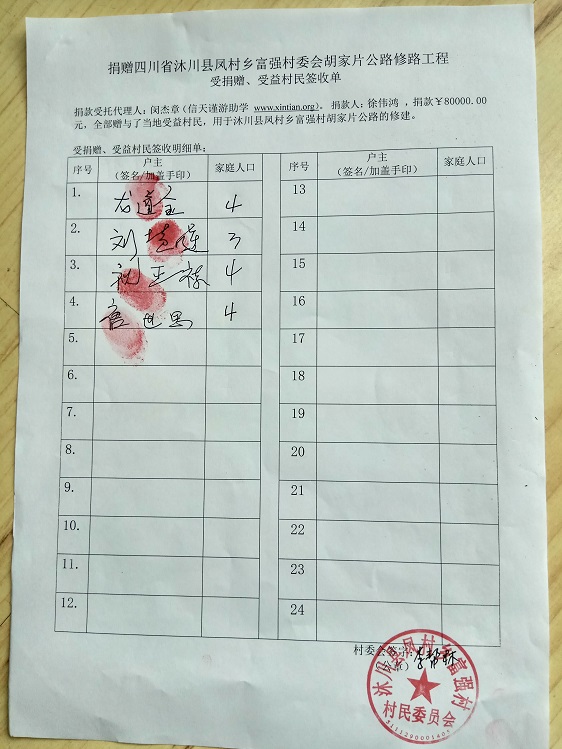 捐赠四川省沐川县凤村乡富强村委会胡家片公路修路工程
受捐赠、受益村民签收单
捐款受托代理人：闵杰章（信天谨游助学 www.xintian.org）。捐款人：徐伟鸿，捐款￥80000.00
元，全部赠与了当地受益村民，用于沐川县凤村乡富强村胡家片公路的修建。
受捐赠、受益村民签收明细单：
序号 户主 家庭人口 序号 户主 家庭人口
（签名/加盖手印） （签名/加盖手印）
1. 4 13
2. 刘 3 14
3. 祝正 4 15
4. 4 16
5. 17
6. 18
7. 19
8. 20
9. 21
10. 22
11. 23
12. 24
村委会签字：
（公章）
沐川县凤村乡富强村
村民委员会